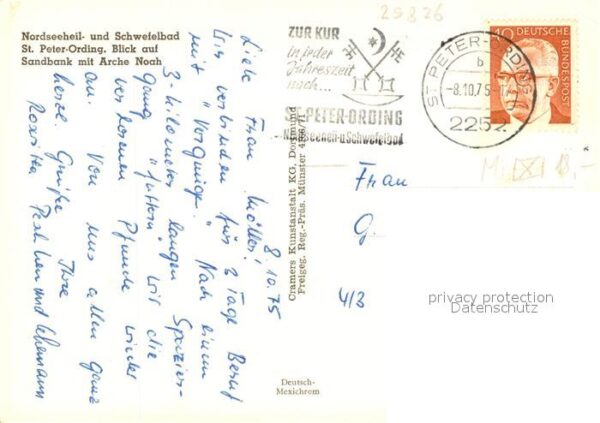 Nordseeheil- und Schwefelbad
St. Peter-Ording. Blick auf
Sandbank mit Arche Noah
8.10.75
Liebe Frau Möller!
Beruf
verbinden für 2 Tage
mit "Vergnüg." Nach einem
3-Kilometer langen Spazier-
gang "futtern" wir die
verlorenen Pfunde wieder
an. Von uns allen ganz
herzl. Grüße Ihre
und Lehmann
Cramers Kunstanstalt KG, Dortmund
Freigeg. Reg.-Präs. Münster
Deutsch-
Mexichrom
25826
ZUR KUR
in jeder
Jahreszeit
nach...
ST. PETER-ORDING
Nordseeheil-u Schwefelbad
ST PETER-ORDING
b
-8.10.75-17
2252
40 DEUTSCHE
BUNDESPOST
Frau
G.
4/3
privacy protection
Datenschutz